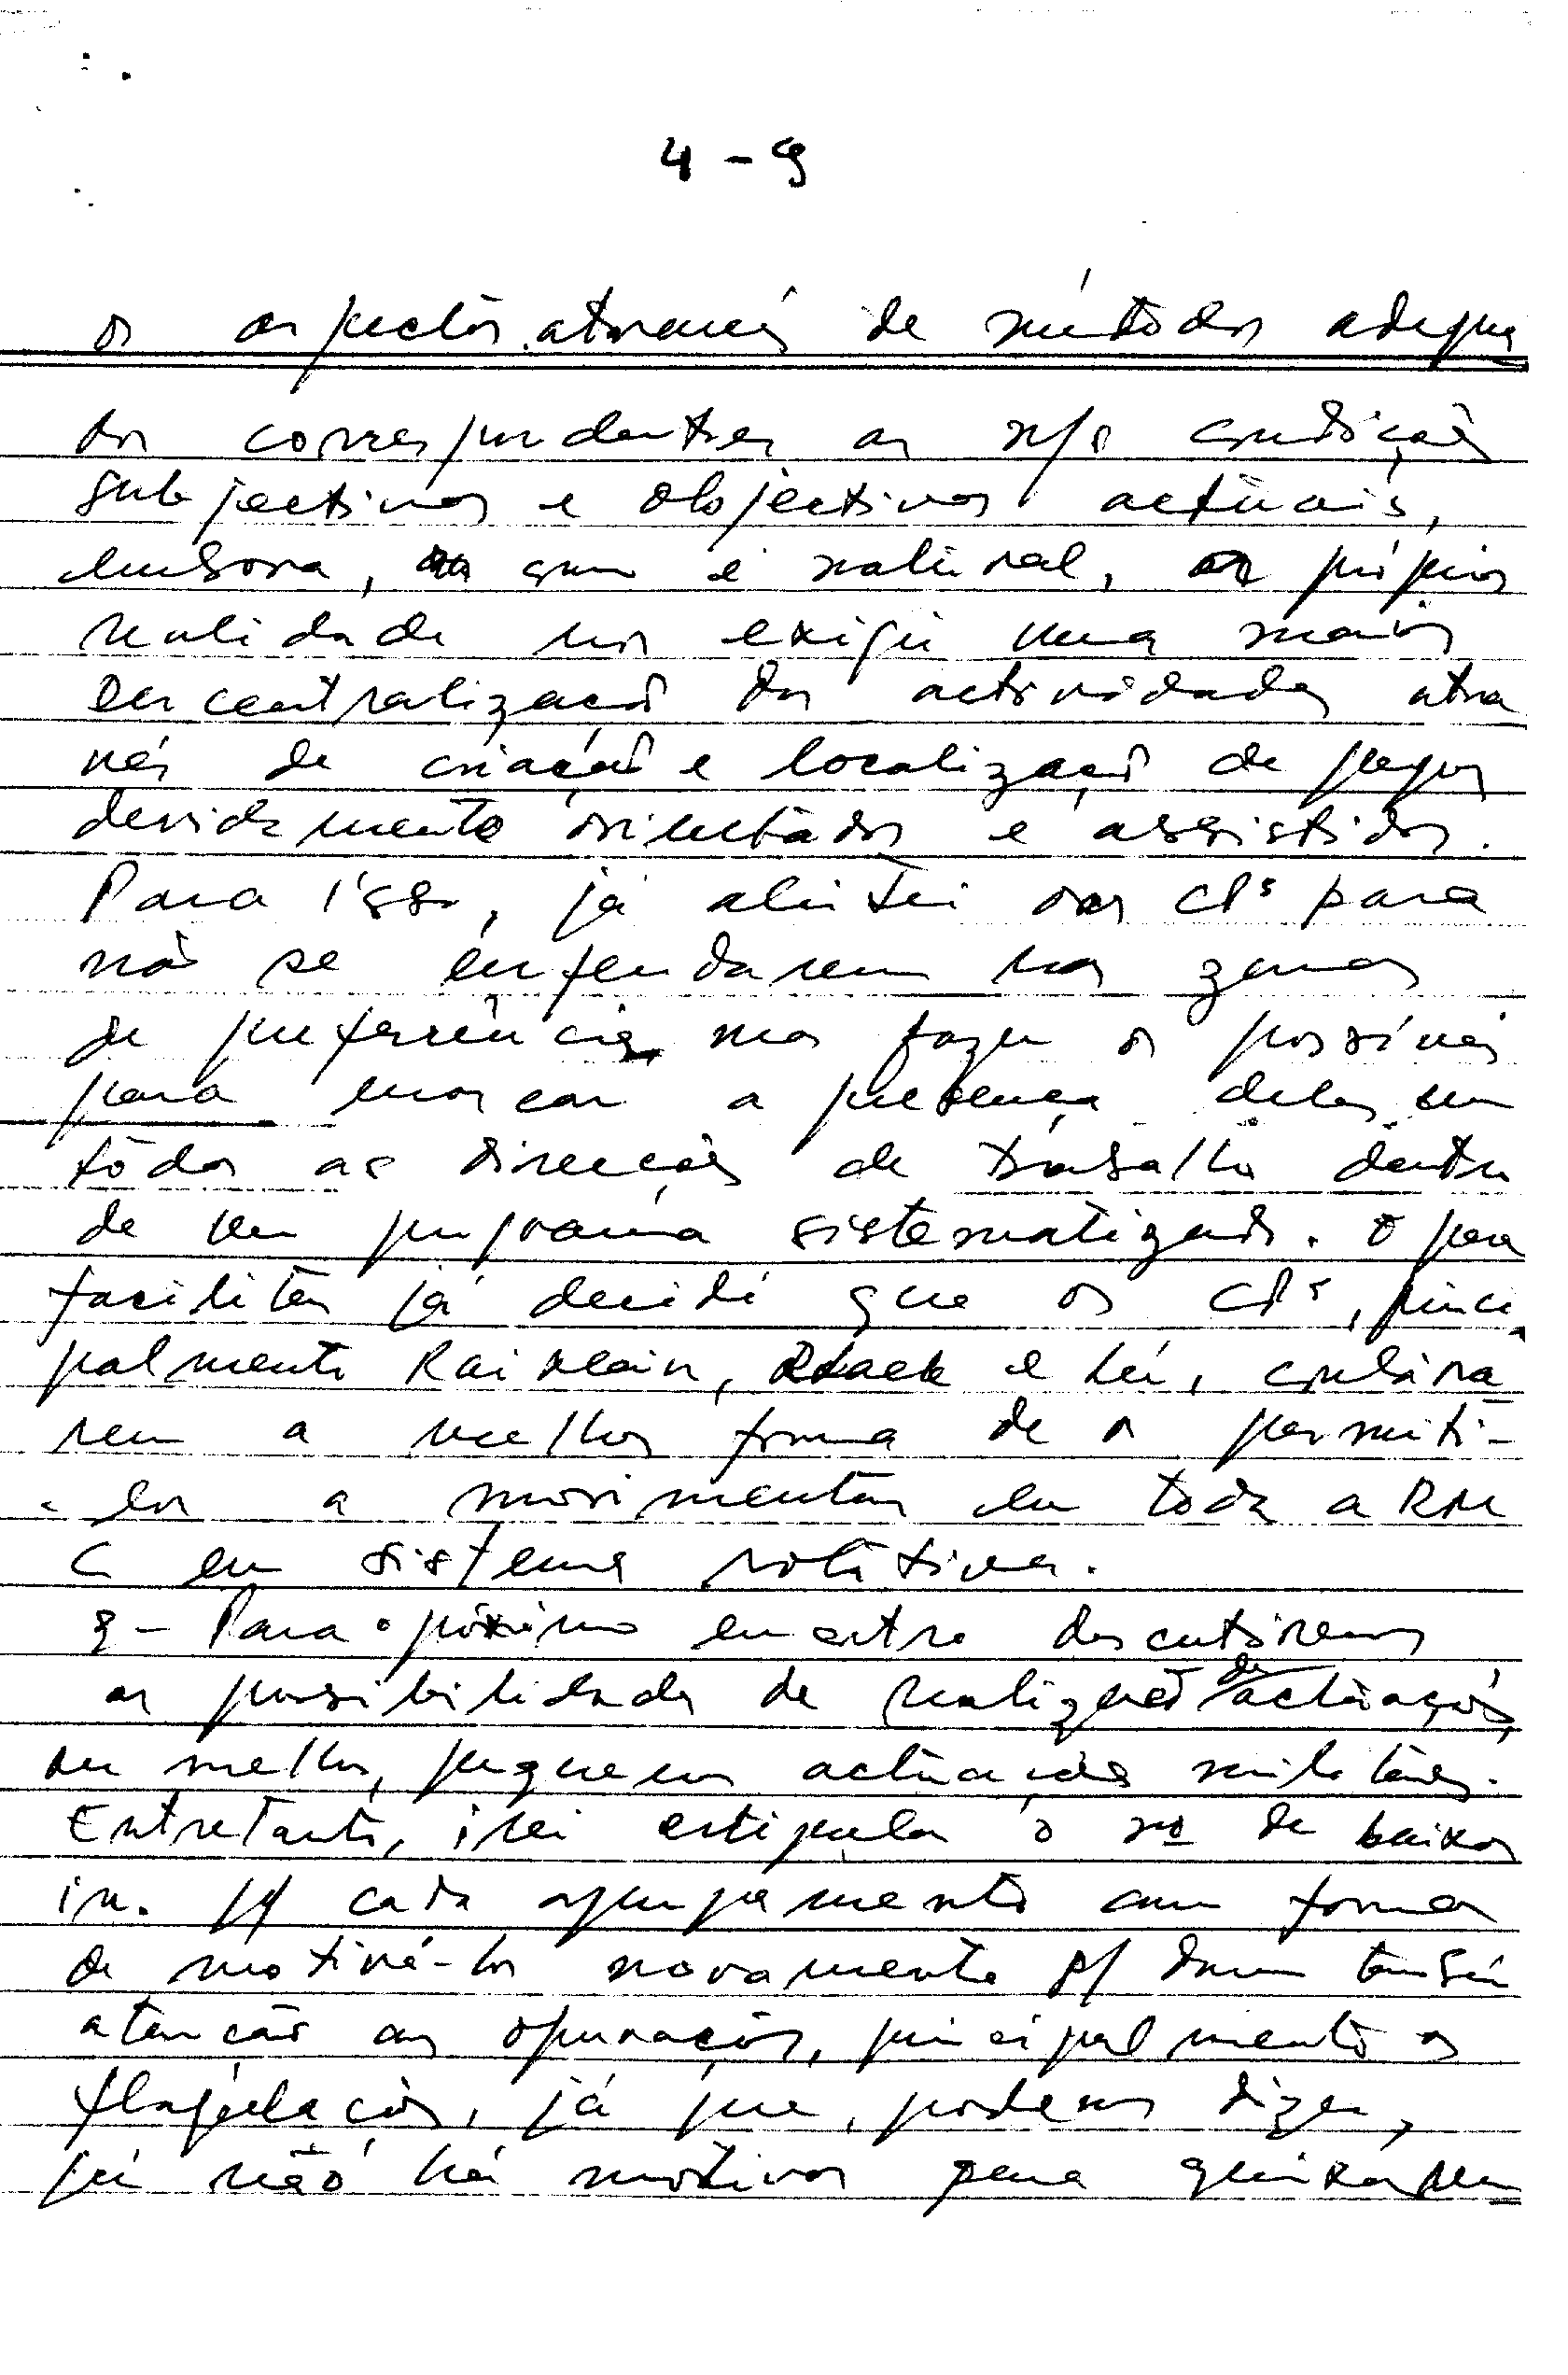 4 - 9
os aspectos através de métodos adequa
dos correspondentes as n/s condições
subjectivas e objectivas actuais,
embora, como é natural, as própias
realidade nos exigir uma maior
descentralização das actividades atra
vés de criação e localização de
devidamente orientados e assistidos.
Para isso, já alertei aos CPs para
não se enfeudarem nas zonas
de preferência mas fazer os possíveis
para marcar a presença deles em
tôdas as direcções de trabalho dentro
de um programa sistematizado. E para
facilitar já decidi que os CPs, princi
palmente Rai Klain, e Lú,
rem a melhor forma de os permiti-
- los a movimentar em toda a
em sistema rotativa.
9 - Para o próximo encontro discutiremos
as possibilidades de realização de actuações,
ou melhor, pequenas actuações militares.
Entretanto, irei estipular o nº de baixas
in. p/ cada agrupamento como forma
de motivá-los novamente p/ darem também
atenção as operações, principalmente as
flagelações, já que, podemos dizer,
já não há motivos para queixarem